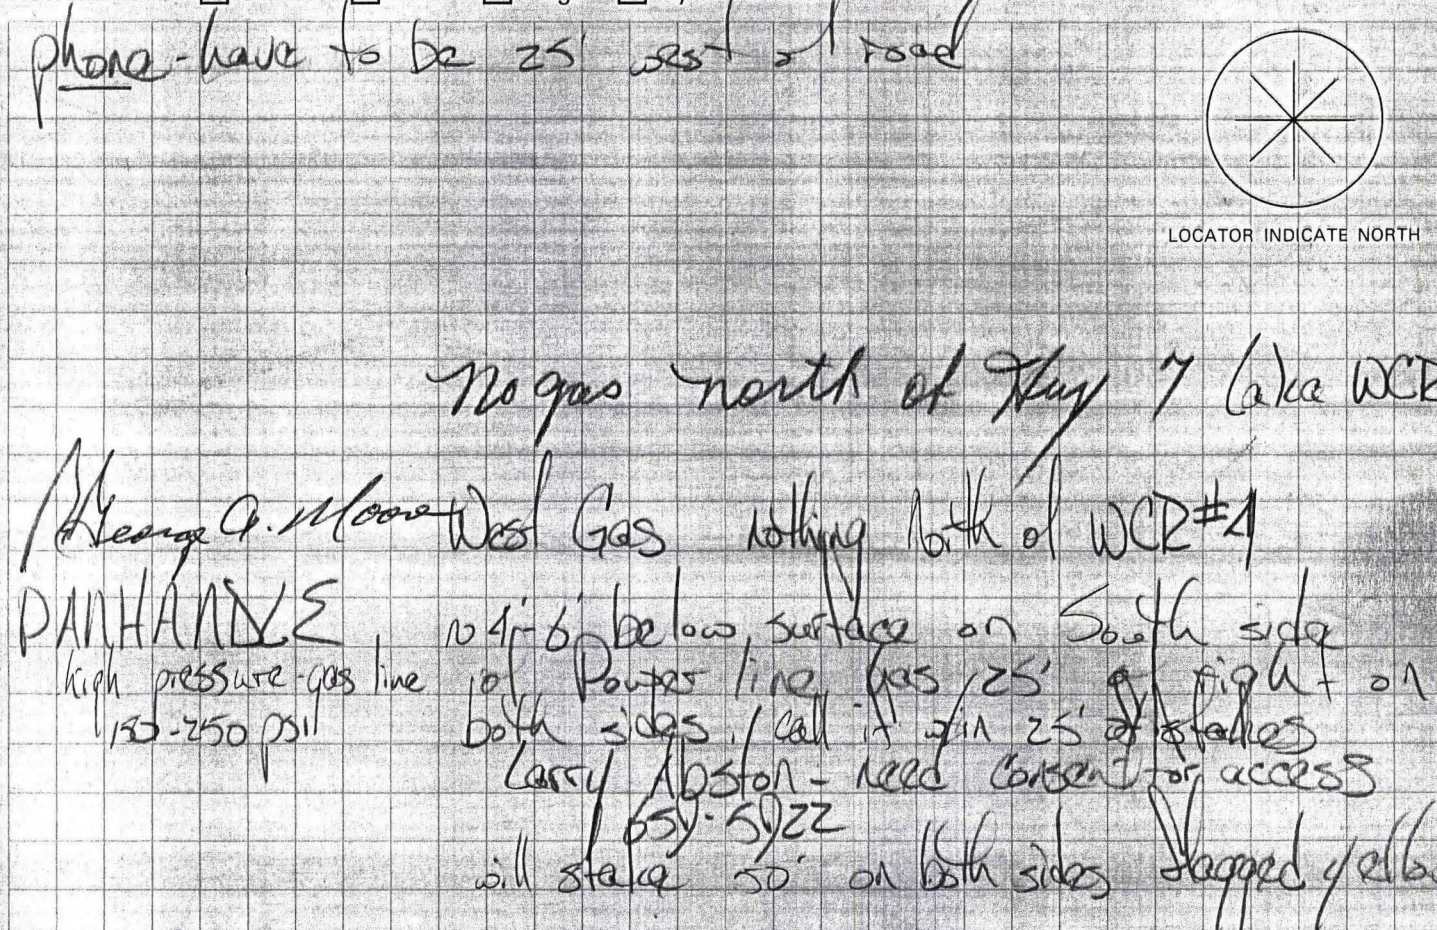 phone-have to be 25' west of road
LOCATOR INDICATE NORTH
No gas north of Hwy 7 (aka WCR
George A. Moore West Gas nothing North of WCR#4
PANHANDLE ~ 4'-6' below surface on South side
high pressure-gas line of Power line has 25' of right on
150-250 psi both sides, call if w/in 25' of stakes
Larry Abston - need consent for access
659-5922
will stake 50' on both sides flagged yellow